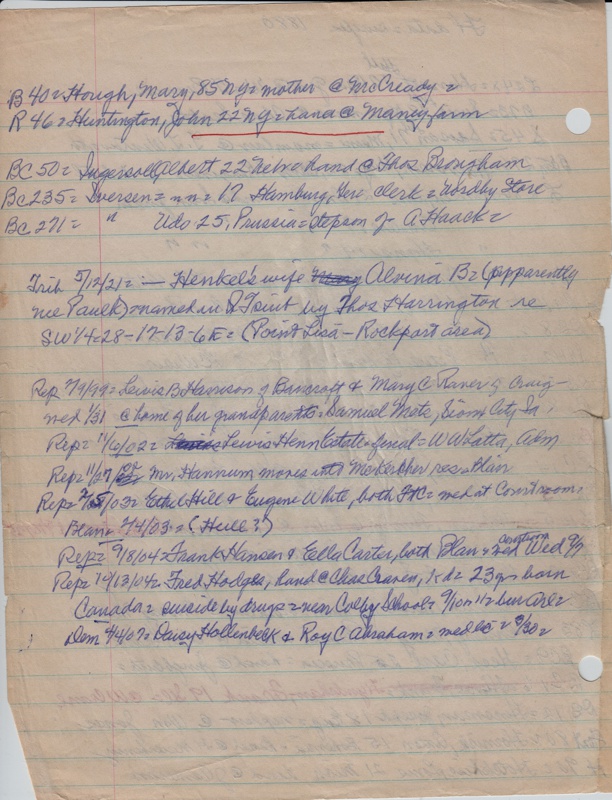 B 40 = Hough, Mary, 85 NY = mother @ McCready =
R 46 = Huntington, John 22 NY = hand @ Maney farm
BC 50 = Ingersoll, Albert 22 Nebr = hand @ Thos Brongham
BC 235 = Iversen = nn = 17 Hamburg, Ger clerk = Nordby Store
BC 271 = " Udo 25, Prussia = stepson of A Haack =
Trib 5/12/21 = — Henkel's wife Alvina B = (apparently
nee Paulk) = named in by Thos Harrington re
SW 1/4 = 28-17-13-6E = (Point Lisa - Rockport area)
Rep 2/9/99 = Lewis B Harrison of Bancroft & Mary C Raver of Craig =
wed 1/31 @ home of her grandparents = Samuel Metz, Sioux City Ia.
Rep = 11/6/02 = Lewis Henn Estate = final = WW Latta, Adm
Rep = 11/27/02 Mr. Hannum moves into McKercher res. Blair
Rep = 2/5/03 = Ethel Hill & Eugene White, both FtC = wed at Courtroom,
Blair = 2/4/03 = (Hull?)
Rep = 9/8/04 = Frank Hanson & Ella Carter, both Blair = wed Wed 9/7
Rep = 10/13/04 = Fred Hodges, hand @ Chas Craven, Kd = 23 yrs born
Canada = suicide by drugs = near Colby School = 9/10 or 11 = bur Arl =
Dem 4/4/07 = Daisy Hollenbeck & Roy C Abraham = wed = 3/30 =